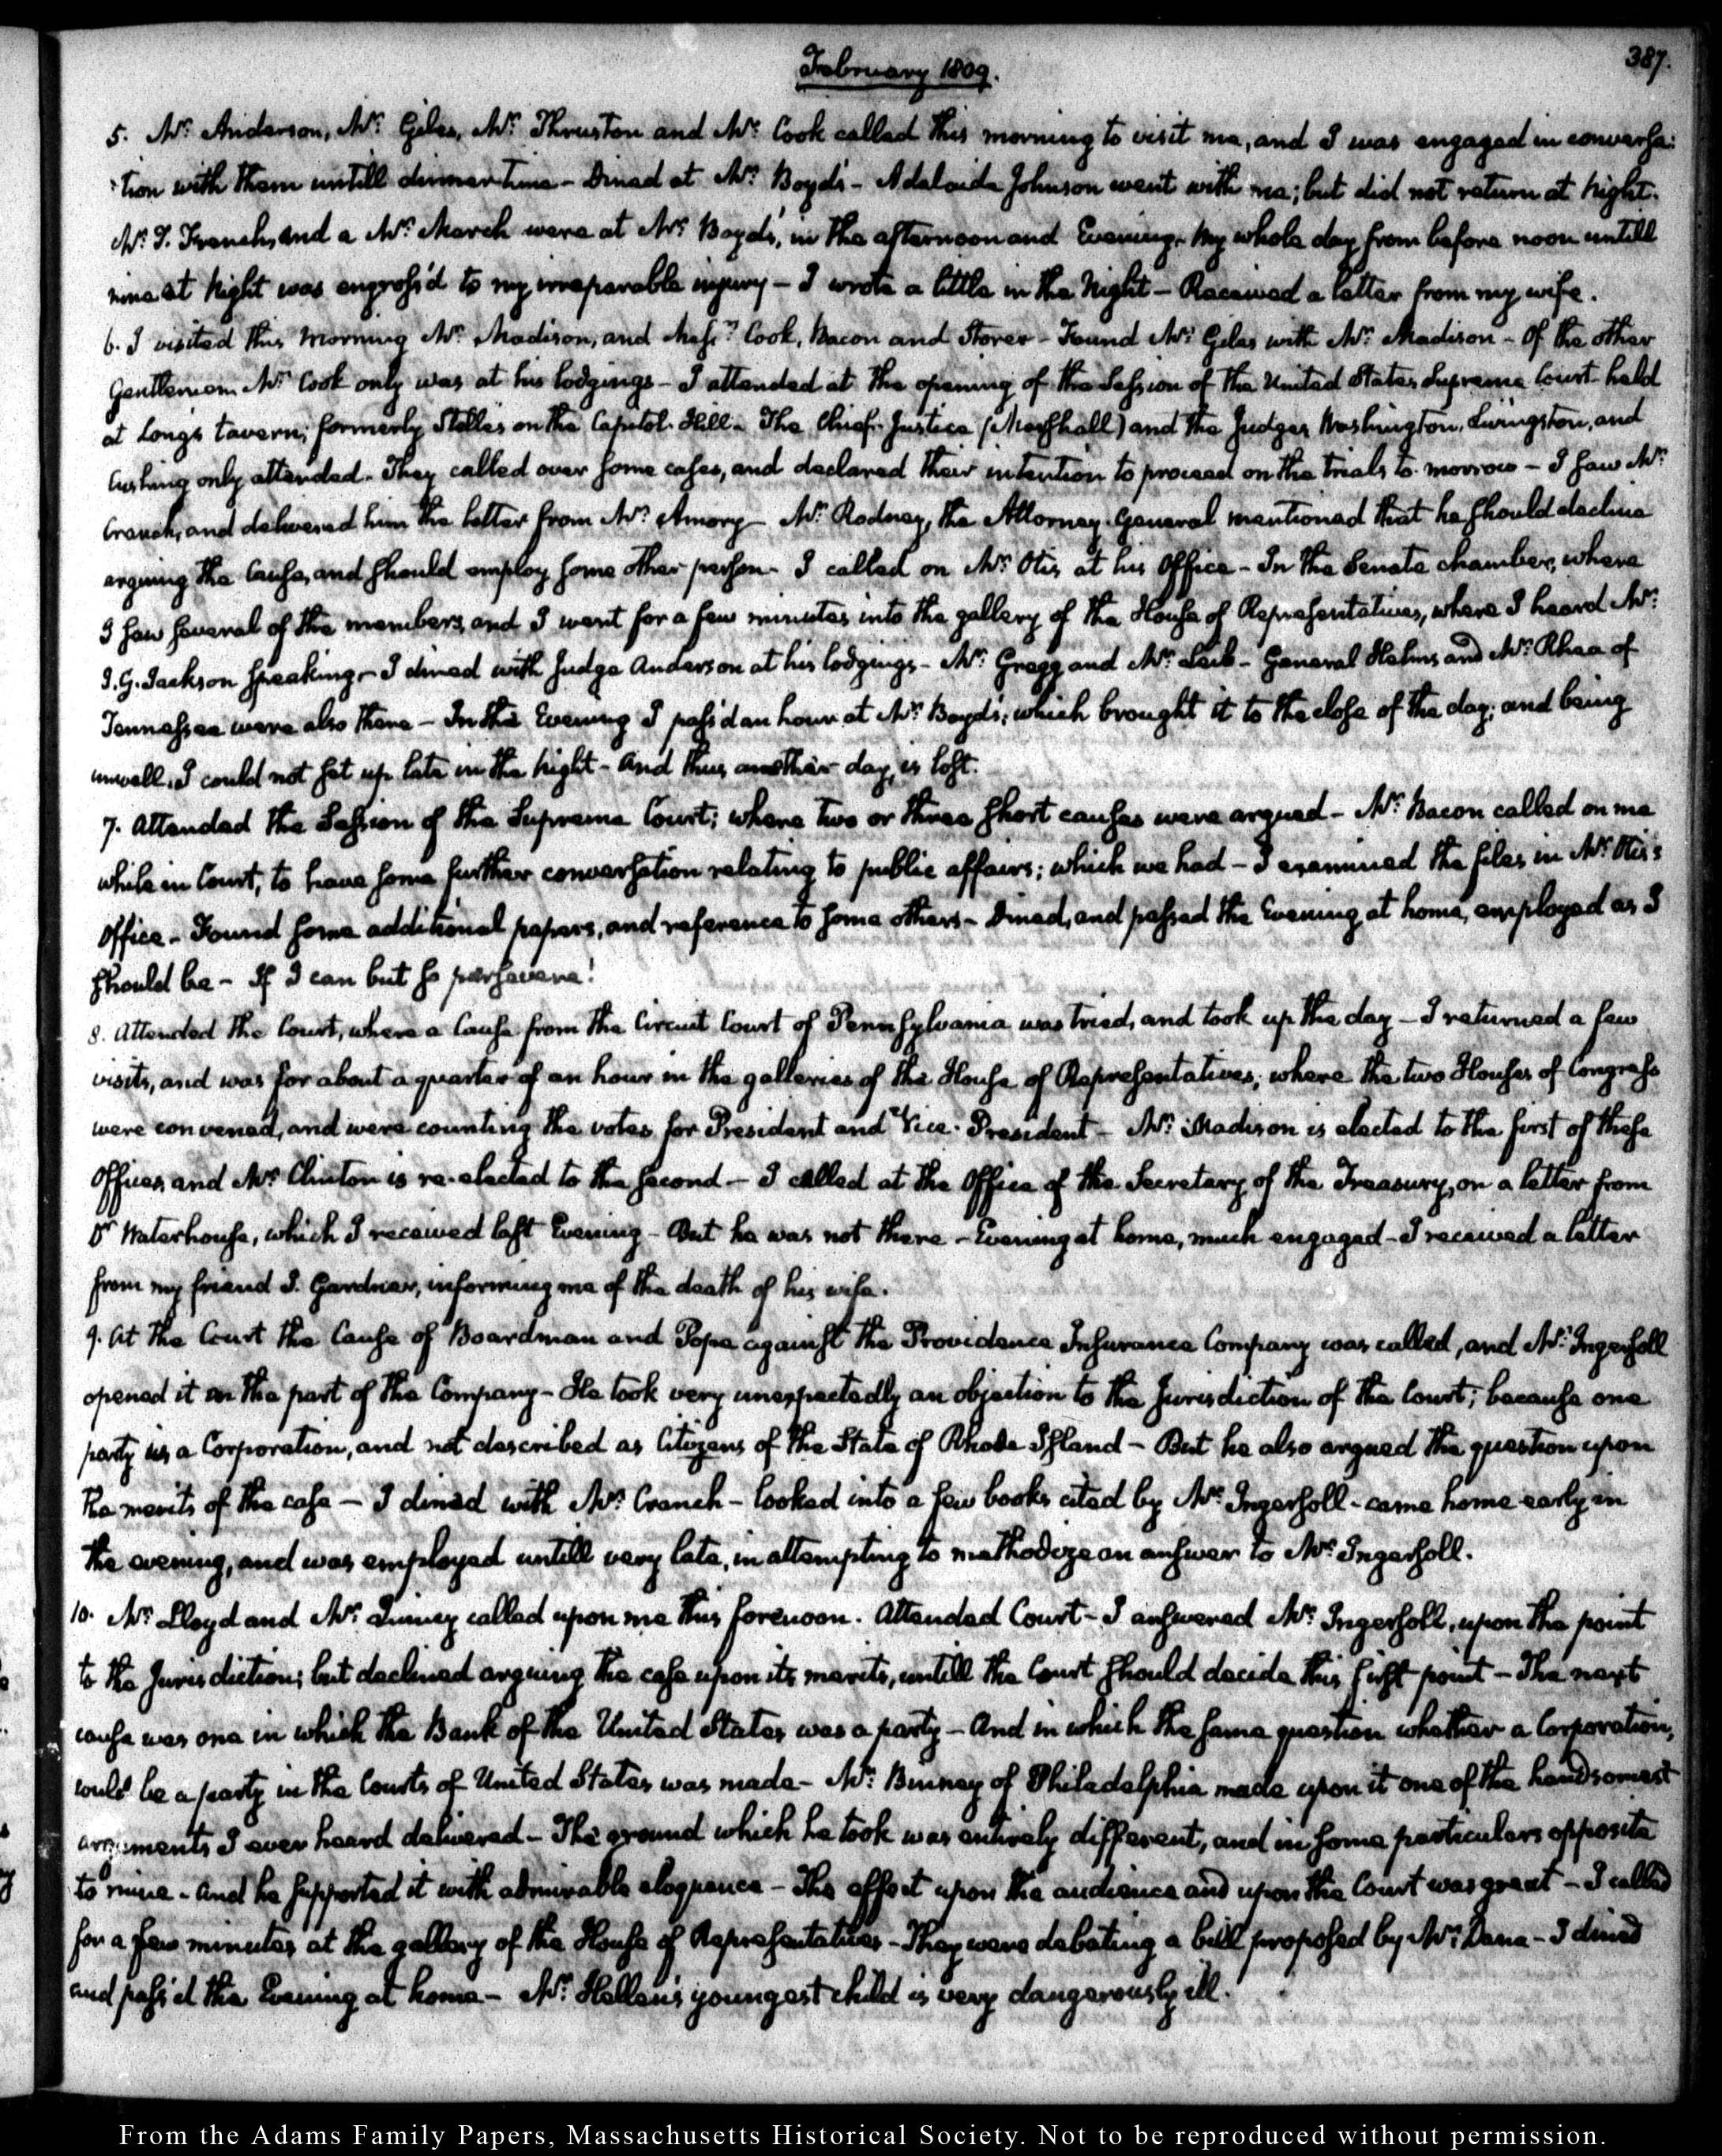 387.
February 1809.
5. Mr. Anderson, Mr. Giles, Mr. Thruston and Mr. Cook called this morning to visit me, and I was engaged in conversa:
:tion with them untill dinner time - Dined at Mr. Boyd's - Adelaide Johnson went with me; but did not return at Night.
Mr. and a Mr. March were at Mr. Boyd's, in the afternoon and Evening. My whole day from before noon untill
nine at Night was engross'd to my irreparable injury - I wrote a little in the Night - Received a letter from my wife.
6. I visited this Morning Mr. Madison, and Messrs. Cook, Bacon and Storer - Found Mr. Giles with Mr. Madison - Of the other
Gentlemen Mr. Cook only was at his lodgings - I attended at the opening of the Session of the United States Supreme Court held
at Long's tavern, formerly Stelle's on the Capitol-Hill - The Chief-Justice (Marshall) and the Judges Washington, Livingston, and
Cushing only attended - They called over some cases, and declared their intention to proceed on the trials to-morrow - I saw Mr.
Cranch, and delivered him the letter from Mr. Amory - Mr. Rodney, the Attorney General mentioned that he should decline
arguing the Cause, and should employ some other person - I called on Mr. Otis at his Office - In the Senate chamber, where
I saw several of the members, and I went for a few minutes into the gallery of the House of Representatives, where I heard Mr.
J. G. Jackson speaking - I dined with Judge Anderson at his lodgings - Mr. Gregg and Mr. Leib - General Helms and Mr. Rhea of
Tennessee were also there - In the Evening I pass'd an hour at Mr. Boyd's; which brought it to the close of the day; and being
unwell, I could not set up late in the Night - And thus another day, is lost.
7. Attended the Session of the Supreme Court; where two or three short causes were argued - Mr. Bacon called on me
while in Court, to have some further conversation relating to public affairs; which we had - I examined the files in Mr. Otis's
Office - Found some additional papers, and reference to some others - Dined, and passed the Evening at home, employed as I
should be - If I can but so persevere!
8. Attended the Court, where a Cause from the Circuit Court of Pennsylvania was tried, and took up the day - I returned a few
visits, and was for about a quarter of an hour in the galleries of the House of Representatives; where the two Houses of Congress
were convened, and were counting the votes for President and Vice-President - Mr. Madison is elected to the first of these
Offices, and Mr. Clinton is re-elected to the second - I called at the Office of the Secretary of the Treasury, on a letter from
Dr Waterhouse, which I received last Evening - But he was not there - Evening at home, much engaged - I received a letter
from my friend J. Gardner, informing me of the death of his wife.
9. At the Court the Cause of Boardman and Pope against the Providence Insurance Company was called, and Mr. Ingersoll
opened it on the part of the Company - He took very unexpectedly an objection to the Jurisdiction of the Court; because one
party is a Corporation, and not described as Citizens of the State of Rhode Island - But he also argued the question upon
the merits of the case - I dined with Mr. Cranch - looked into a few books cited by Mr. Ingersoll - came home early in
the evening, and was employed untill very late, in attempting to methodize an answer to Mr. Ingersoll.
10. Mr. Lloyd and Mr. Quincy called upon me this forenoon. Attended Court - I answered Mr. Ingersoll, upon the point
to the Jurisdiction; but declined arguing the case upon its merits, untill the Court should decide this first point - The next
cause was one in which the Bank of the United States was a party - And in which the same question whether a Corporation,
could be a party in the Courts of United States was made - Mr. Binney of Philadelphia made upon it one of the handsomest
arguments I ever heard delivered - The ground which he took was entirely different, and in some particulars opposite
to mine - And he supported it with admirable eloquence - The effect upon the audience and upon the Court was great - I called
for a few minutes at the gallery of the House of Representatives - They were debating a bill proposed by Mr. Dana - I dined
and pass'd the Evening at home - Mr. Hellen's youngest child is very dangerously ill.
From the Adams Family Papers, Massachusetts Historical Society. Not to be reproduced without permission.